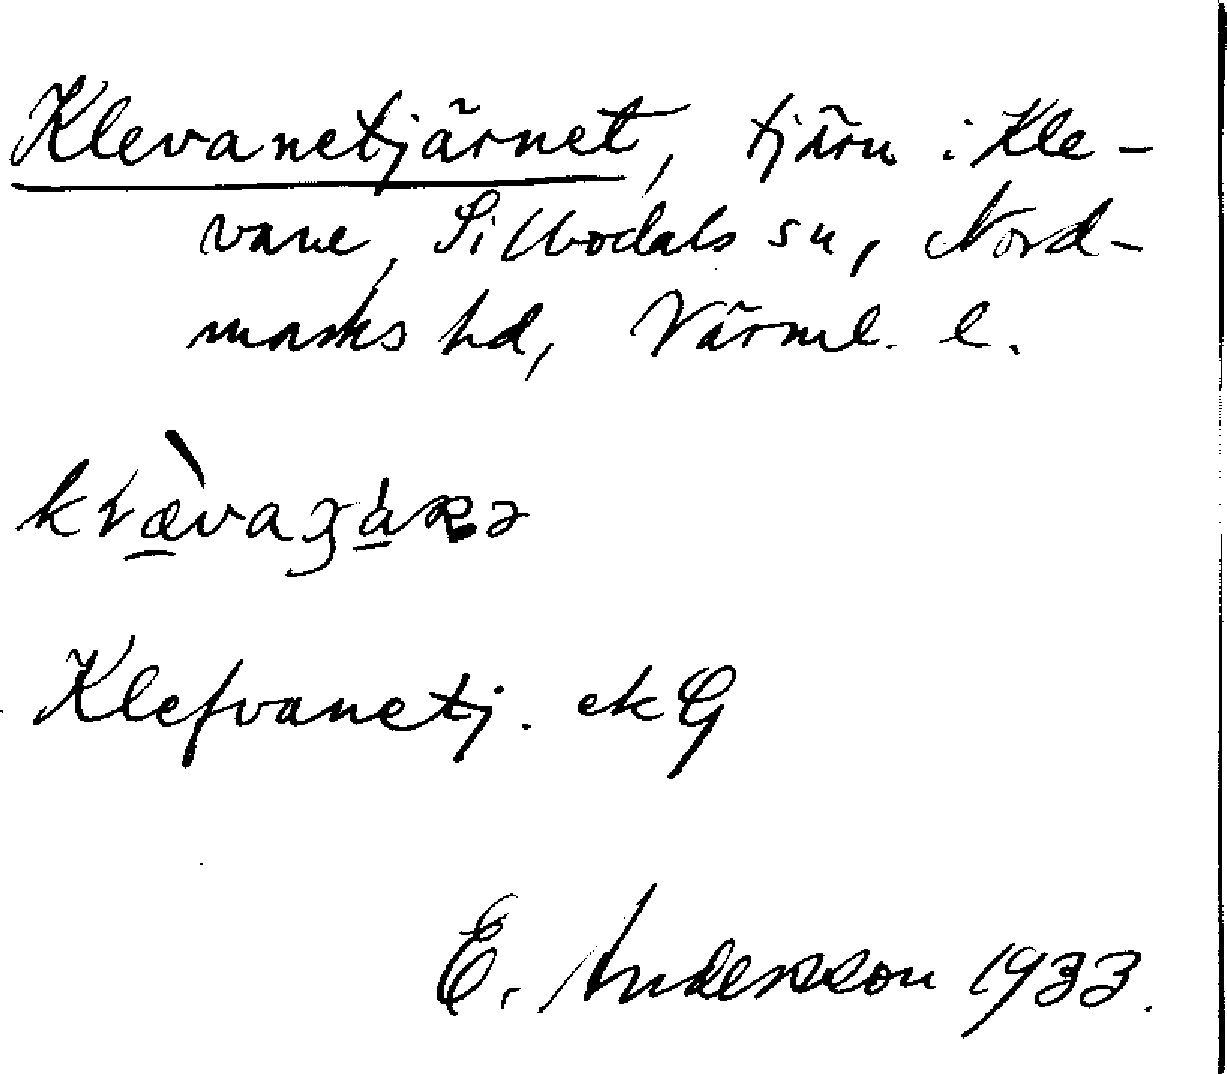 Klevanetjärnet, tjärn i Kle-
vane, Sillbodals sn, Nord-
marks hd, Värml. l.
Klefvanetj. ek G
E. Andersson 1933.